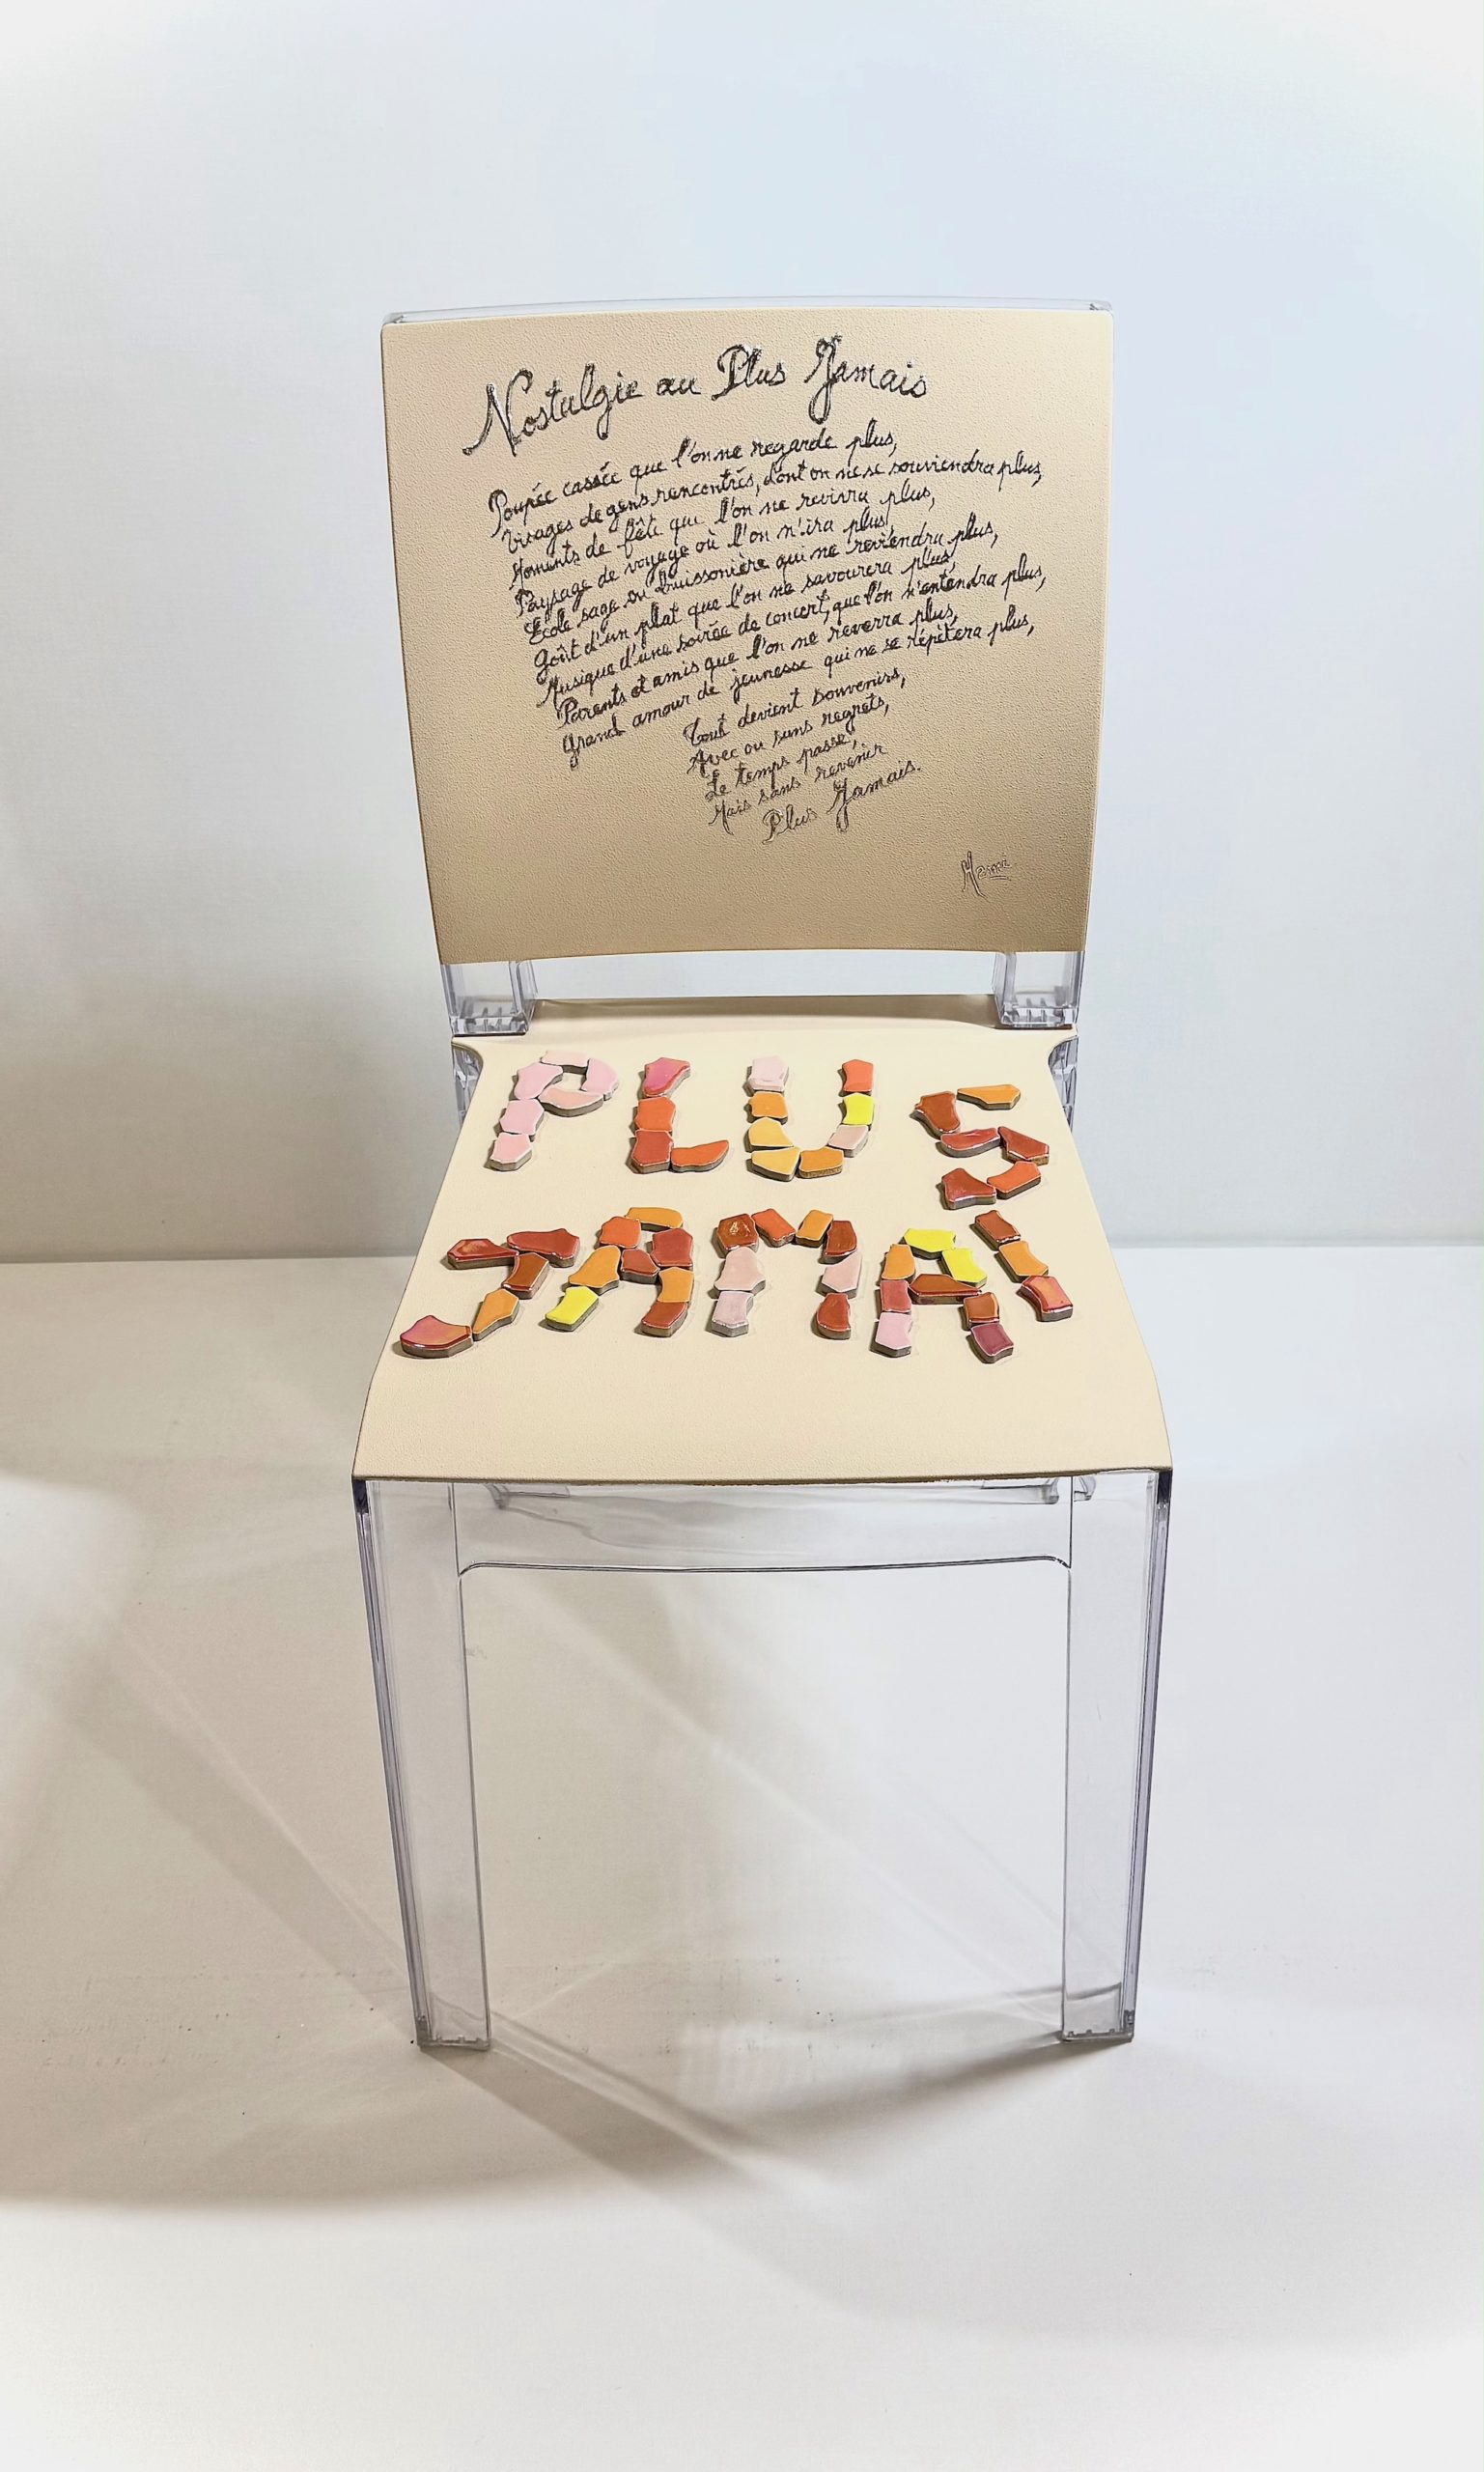 Nostalgie au Plus Jamais
Poupée cassée que l'on ne regarde plus,
Visages de gens rencontrés, dont on ne se souviendra plus,
Moments de fête que l'on ne revivra plus,
Paysage de voyage où l'on n'ira plus,
École sage ou buissonière qui ne reviendra plus,
Goût d'un plat que l'on ne savourera plus,
Musique d'une soirée de concert, que l'on n'entendra plus,
Parents et amis que l'on ne reverra plus,
Grand amour de jeunesse qui ne se répètera plus,
Tout devient souvenirs,
Avec ou sans regrets,
Le temps passe,
Mais sans revenir
Plus Jamais.
PLUS
JAMAI